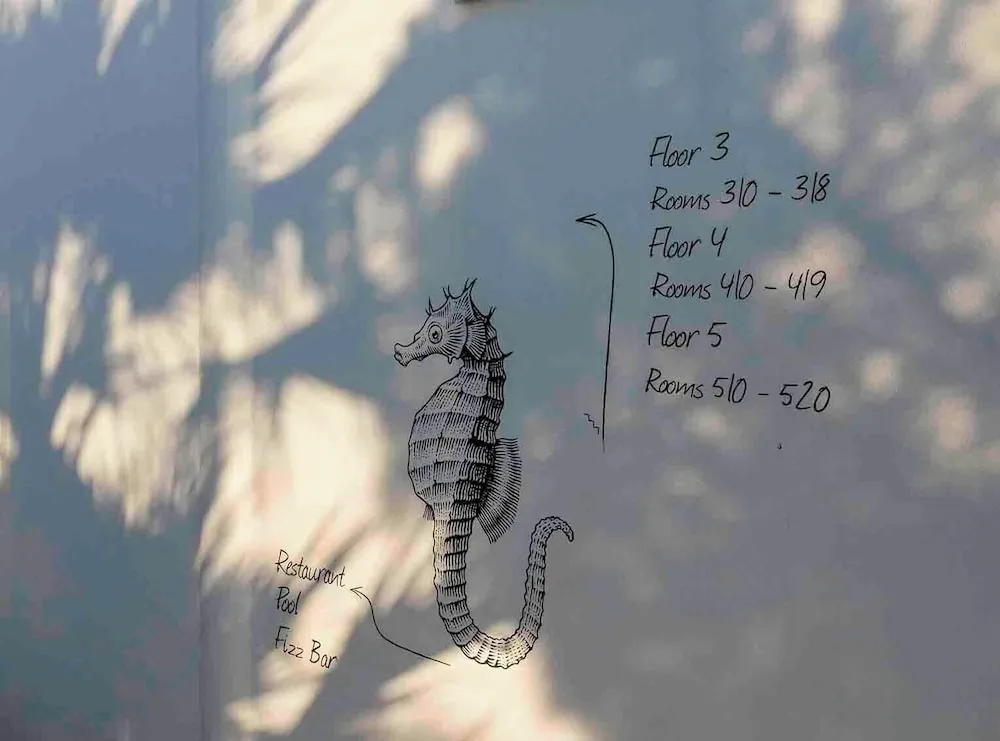 Floor 3
Rooms 310 - 318
Floor 4
Rooms 410 - 419
Floor 5
Rooms 510 - 520
Restaurant
Pool
Fizz Bar